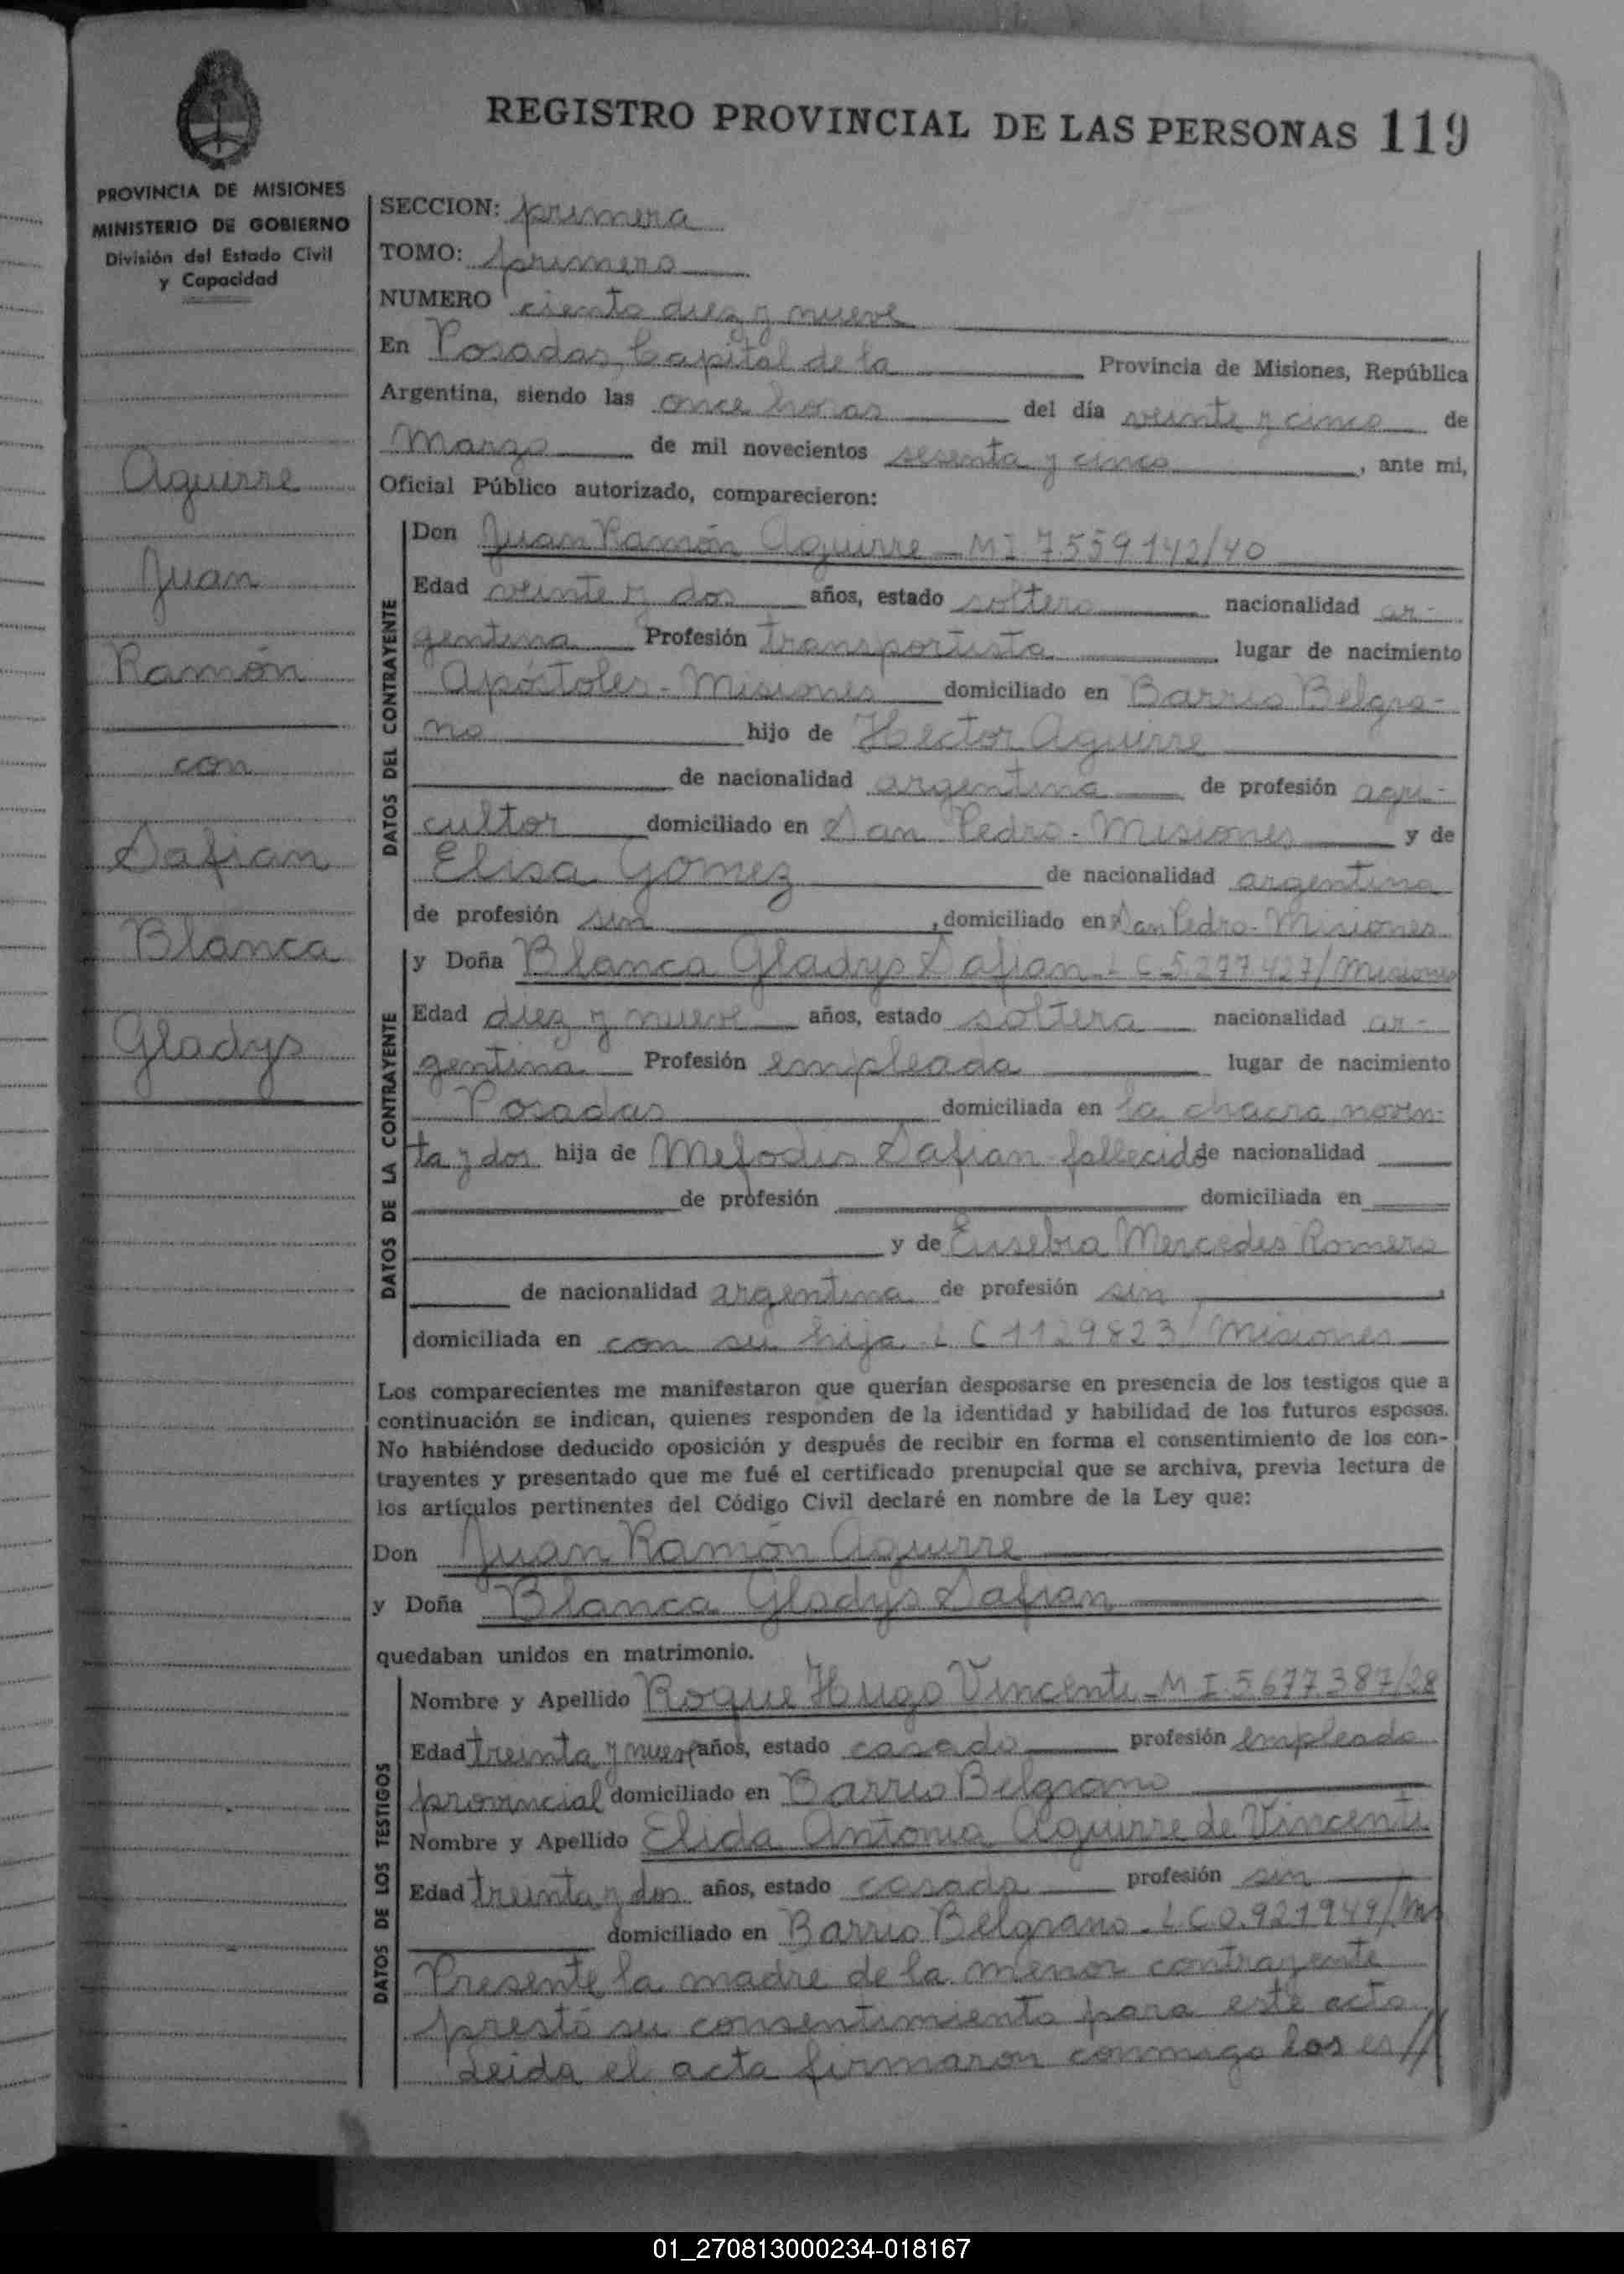 REGISTRO PROVINCIAL DE LAS PERSONAS 119
PROVINCIA DE MISIONES
MINISTERIO DE GOBIERNO
División del Estado Civil
y Capacidad
Aguirre
Juan
Ramón
con
Safian
Blanca
Gladys
SECCION: primera
TOMO: primero
NUMERO ciento diez y nueve
En Posadas, Capital de la Provincia de Misiones, República
Argentina, siendo las once horas del día veinte y cinco de
Marzo de mil novecientos sesenta y cinco, ante mi,
Oficial Público autorizado, comparecieron:
DATOS DEL CONTRAYENTE
Don Juan Ramón Aguirre - MI 7.559.142/40
Edad veinte y dos años, estado soltero nacionalidad ar-
gentina Profesión transportista lugar de nacimiento
Apóstoles - Misiones domiciliado en Barrio Belgra-
no hijo de Hector Aguirre
de nacionalidad argentina de profesión agri-
cultor domiciliado en San Pedro - Misiones y de
Elisa Gomez de nacionalidad argentina
de profesión sin, domiciliado en San Pedro - Misiones
DATOS DE LA CONTRAYENTE
y Doña Blanca Gladys Safian - L C 5.277.427/Misiones
Edad diez y nueve años, estado soltera nacionalidad ar-
gentina Profesión empleada lugar de nacimiento
Posadas domiciliada en la chacra noven-
ta y dos hija de Mefodio Safian - fallecido de nacionalidad
de profesión domiciliada en
y de Eusebia Mercedes Romero
de nacionalidad argentina de profesión sin,
domiciliada en con su hija L C 1129823/Misiones
Los comparecientes me manifestaron que querían desposarse en presencia de los testigos que a
continuación se indican, quienes responden de la identidad y habilidad de los futuros esposos.
No habiéndose deducido oposición y después de recibir en forma el consentimiento de los con-
trayentes y presentado que me fué el certificado prenupcial que se archiva, previa lectura de
los artículos pertinentes del Código Civil declaré en nombre de la Ley que:
Don Juan Ramón Aguirre
y Doña Blanca Gladys Safian
quedaban unidos en matrimonio.
DATOS DE LOS TESTIGOS
Nombre y Apellido Roque Hugo Vincenti - M I 5.677.387/28
Edad treinta y nueve años, estado casado profesión empleado
provincial domiciliado en Barrio Belgrano
Nombre y Apellido Elida Antonia Aguirre de Vincenti
Edad treinta y dos años, estado casada profesión sin
domiciliado en Barrio Belgrano - L C 0.921949/M
Presente la madre de la menor contrayente
prestó su consentimiento para este acto
Leida el acta firmaron conmigo los es//
01_270813000234-018167